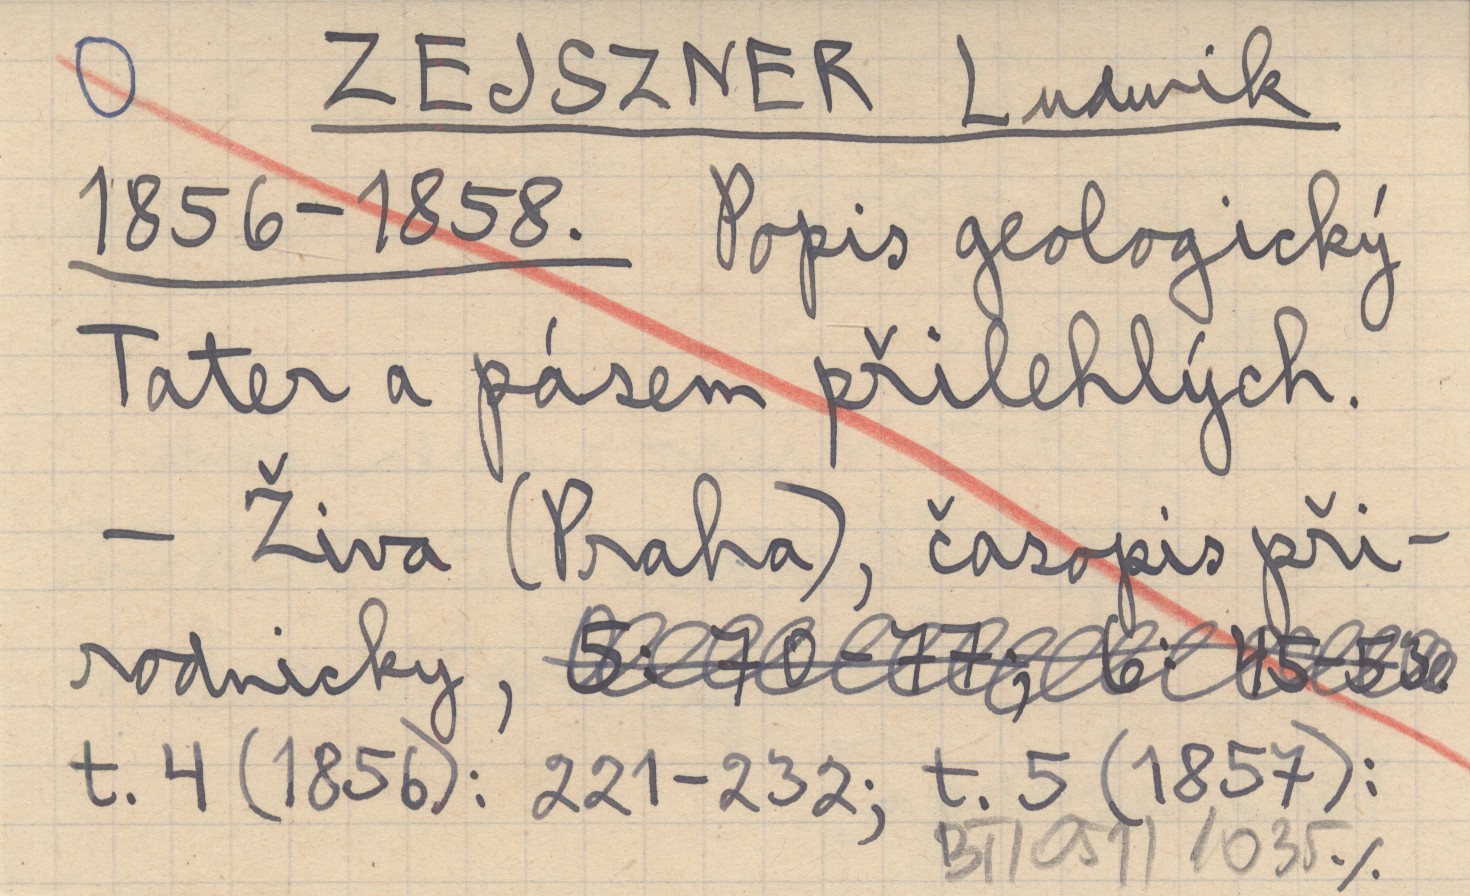 O ZEJSZNER Ludwik
1856-1858. Popis geologický
Tater a pásem přilehlých.
- Živa (Praha), časopis při-
rodnicky, 5: 70-77; 6: 45-53.
t. 4 (1856): 221-232; t. 5 (1857):
./.